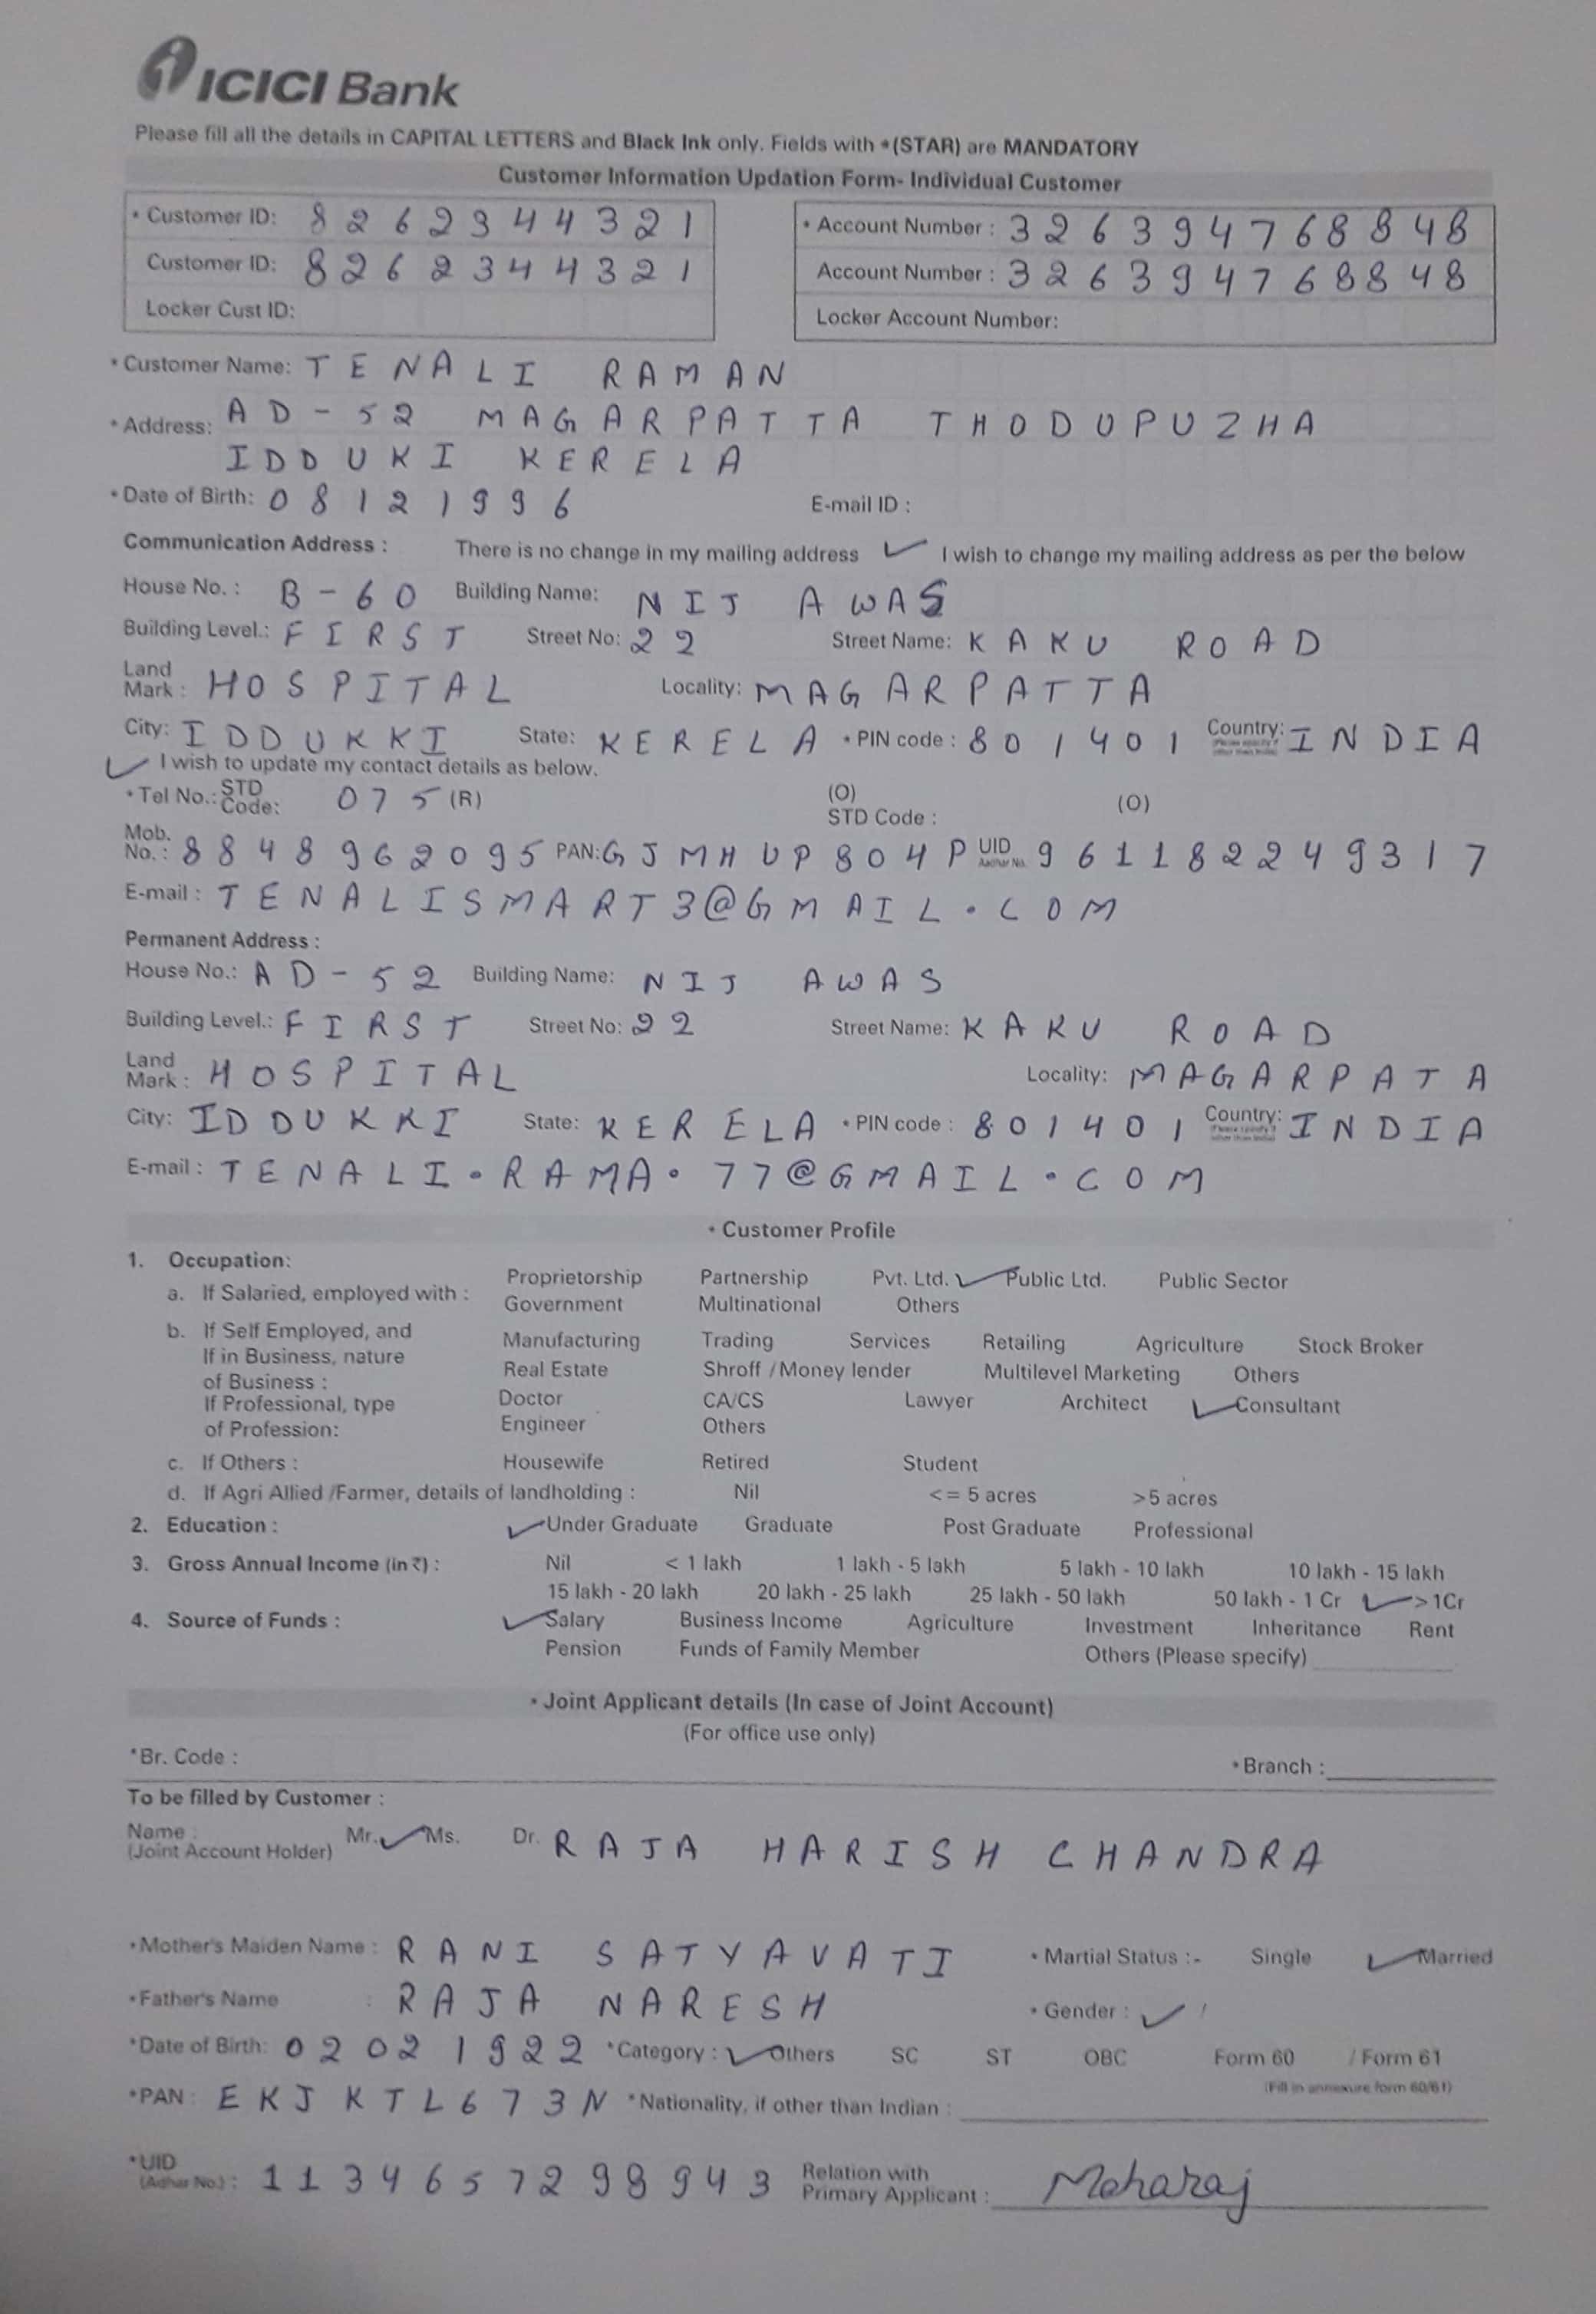 ICICI Bank
Please fill all the details in CAPITAL LETTERS and Black Ink only. Fields with *(STAR) are MANDATORY
Customer Information Updation Form- Individual Customer
* Customer ID: 8262344321 * Account Number : 326394768848
Customer ID: 8262344321 Account Number : 326394768848
Locker Cust ID: Locker Account Number:
* Customer Name: TENALI RAMAN
* Address: AD-52 MAGARPATTA THODUPUZHA
IDDUKI KERELA
* Date of Birth: 08121996 E-mail ID :
Communication Address : There is no change in my mailing address ✓ I wish to change my mailing address as per the below
House No. : B-60 Building Name: NIJ AWAS
Building Level.: FIRST Street No: 22 Street Name: KAKU ROAD
Land Mark : HOSPITAL Locality: MAGARPATTA
City: IDDUKKI State: KERELA * PIN code : 801401 Country: (Please specify if other than India) INDIA
✓ I wish to update my contact details as below.
* Tel No.: STD Code: 075 (R) (O) STD Code : (O)
Mob. No. : 8848962095 PAN: GJMHUP804P UID Aadhar No. 961182249317
E-mail : TENALISMART3@GMAIL.COM
Permanent Address :
House No.: AD-52 Building Name: NIJ AWAS
Building Level.: FIRST Street No: 22 Street Name: KAKU ROAD
Land Mark : HOSPITAL Locality: MAGARPATA
City: IDDUKKI State: KERELA * PIN code : 801401 Country: (Please specify if other than India) INDIA
E-mail : TENALI.RAMA.77@GMAIL.COM
* Customer Profile
1. Occupation:
a. If Salaried, employed with : Proprietorship Partnership Pvt. Ltd. ✓ Public Ltd. Public Sector
Government Multinational Others
b. If Self Employed, and If in Business, nature of Business : Manufacturing Trading Services Retailing Agriculture Stock Broker
Real Estate Shroff /Money lender Multilevel Marketing Others
If Professional, type of Profession: Doctor CA/CS Lawyer Architect ✓ Consultant
Engineer Others
c. If Others : Housewife Retired Student
d. If Agri Allied /Farmer, details of landholding : Nil <= 5 acres >5 acres
2. Education : ✓ Under Graduate Graduate Post Graduate Professional
3. Gross Annual Income (in ₹) : Nil < 1 lakh 1 lakh - 5 lakh 5 lakh - 10 lakh 10 lakh - 15 lakh
15 lakh - 20 lakh 20 lakh - 25 lakh 25 lakh - 50 lakh 50 lakh - 1 Cr ✓ >1Cr
4. Source of Funds : ✓ Salary Business Income Agriculture Investment Inheritance Rent
Pension Funds of Family Member Others (Please specify)
* Joint Applicant details (In case of Joint Account)
(For office use only)
*Br. Code : * Branch :
To be filled by Customer :
Name : (Joint Account Holder) Mr. ✓ Ms. Dr. RAJA HARISH CHANDRA
*Mother's Maiden Name : RANI SATYAVATI * Martial Status :- Single ✓ Married
*Father's Name : RAJA NARESH * Gender : ✓ /
*Date of Birth: 02021922 *Category : ✓ Others SC ST OBC Form 60 / Form 61
(Fill in annexure form 60/61)
*PAN : EKJKTL673N *Nationality, if other than Indian :
*UID (Adhar No.) : 1134657298943 Relation with Primary Applicant : Maharaj